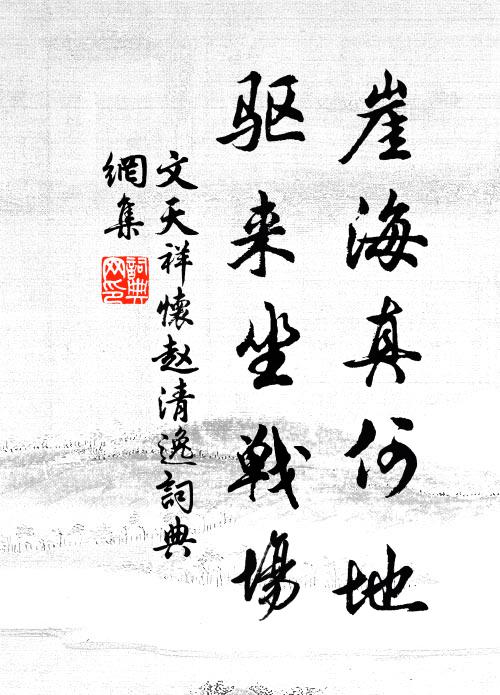 崖海真何地
驱来坐戰场
文天祥懷赵清逸詞典
網集
詞典
网印